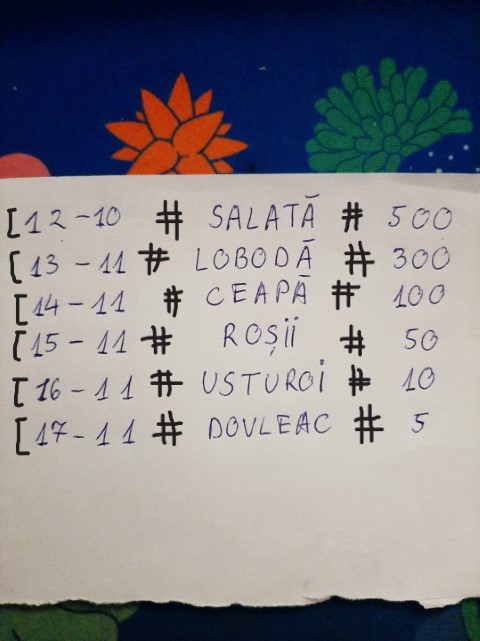 [12-10 # SALATĂ # 500
[13-11 # LOBODĂ # 300
[14-11 # CEAPĂ # 100
[15-11 # ROȘII # 50
[16-11 # USTUROI # 10
[17-11 # DOVLEAC # 5